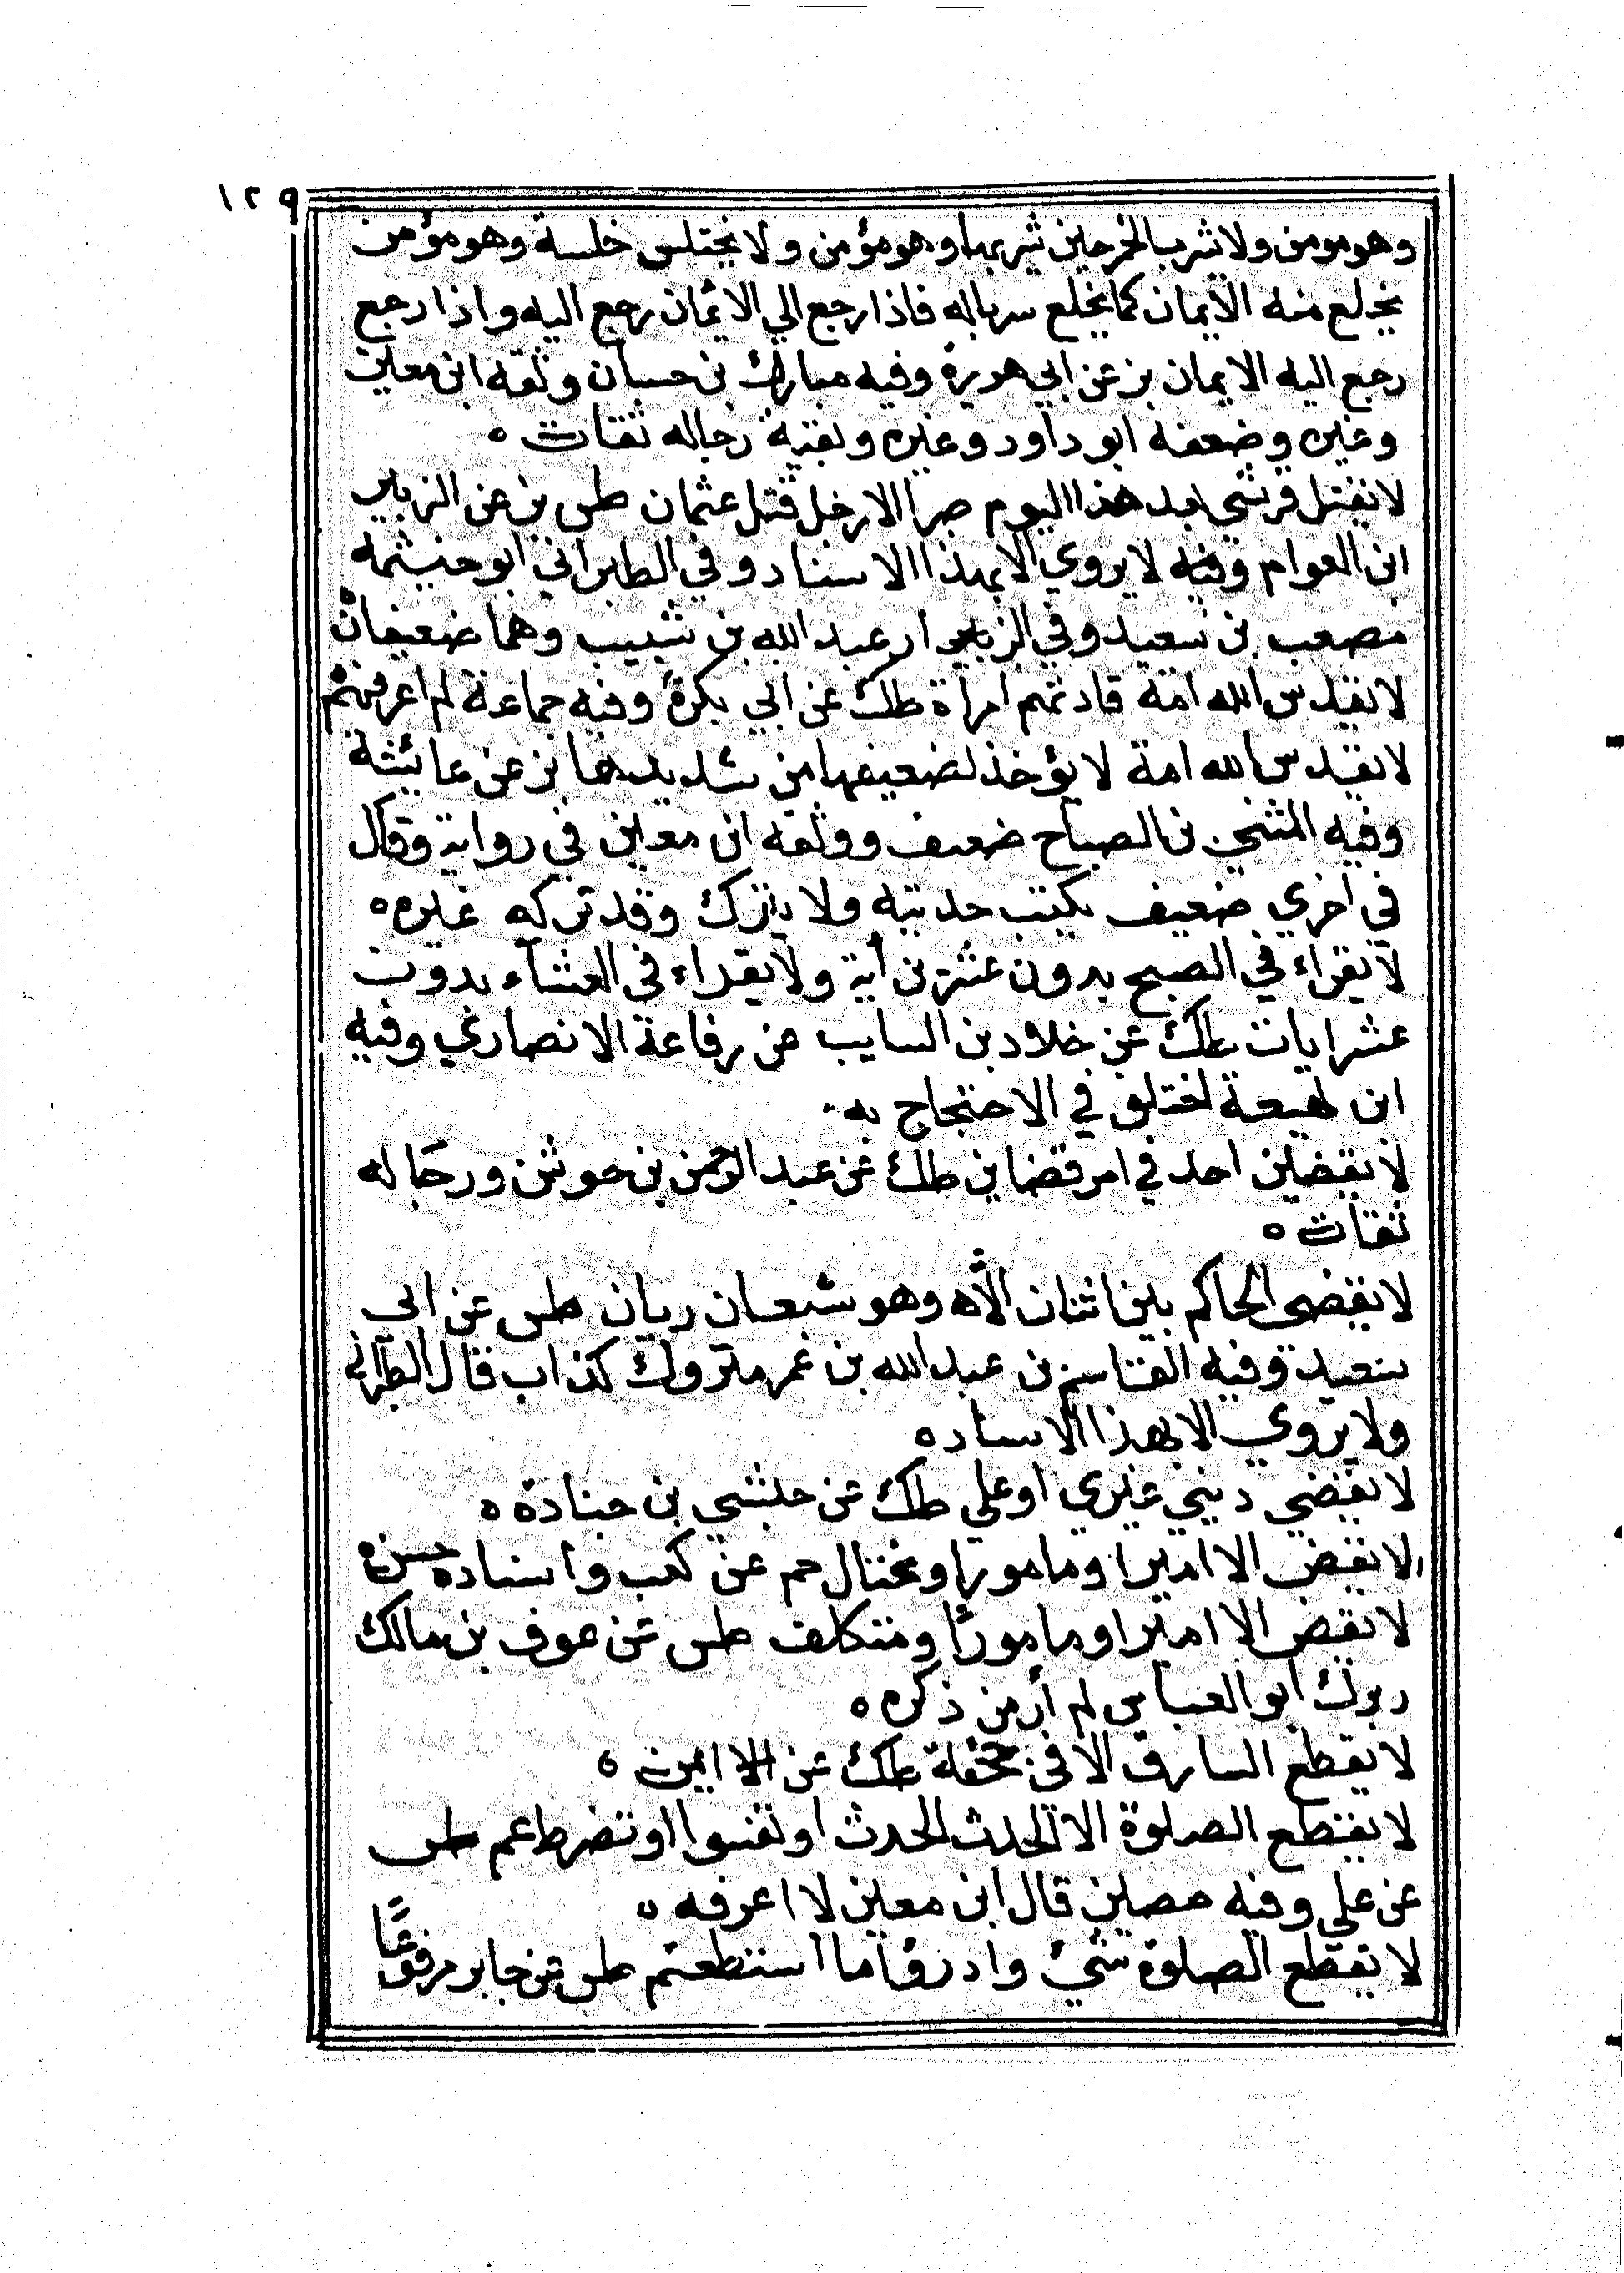 ١٢٩
وهو مومن ولا يشرب الخمر حين يشربها وهو مؤمن ولا يختلس خلسة وهو مؤمن
يخلع منه الايمان كما يخلع سرباله فاذا رجع الي الايمان رجع اليه واذا رجع
رجع اليه الايمان بز عن ابي هريرة وفيه مبارك بن حسان وثقه ابن معين
وغيره وضعفه ابو داود وغيره وبقية رجاله ثقات ه
لا يقتل قرشي بعد هذا اليوم صبرا الا رجل قتل عثمان طس بز عن الزبير
ابن العوام وفيه لا يروي الا بهذا الاسناد وفي الطبراني ابو خيثمه
مصعب بن سعيد وفي البزار عبد الله بن شبيب وهما ضعيفان
لا يقدس الله امة قادتهم امراة طك عن ابي بكرة وفيه جماعة لم اعرفهم
لا يقدس الله امة لا يؤخذ لضعيفها من شديدها بز عن عايشة
وفيه المثني بن الصباح ضعيف ووثقه ابن معين في رواية وقال
في اخري ضعيف يكتب حديثه ولا يترك وقد تركه غيره ه
لا يقراء في الصبح بدون عشرين آية ولا يقراء في العشاء بدون
عشر ايات طك عن خلاد بن السايب عن رفاعة الانصاري وفيه
ابن لهيعة اختلف في الاحتجاج به
لا يقضين احد في امر قضاين طك عن عبد الرحمن بن حوشن ورجاله
ثقات ه
لا يقضي الحاكم بين اثنان الا وهو شبعان ريان طس عن ابي
سعيد وفيه القاسم بن عبد الله بن عمر متروك كذاب قال الطبراني
ولا يروي الا بهذا الاسناد ه
لا يقضي ديني غيري او علي طك عن حبشي بن جنادة ه
لا يقض الا اميرا ومامورا ومختال حم عن كعب واسناده حسن ه
لا يقض الا اميرا ومامورا ومتكلف طس عن عوف بن مالك
ابو العباس لم أر من ذكره ه
لا يقطع السارق الا في حجفة طك عن ايمن ه
لا يقطع الصلوة الا الحدث الحدث او تفسوا او تضرط عم طس
عن علي وفيه حصين قال ابن معين لا اعرفه ه
لا يقطع الصلوة شيئ وادرؤا ما استطعتم طس عن جابر مرفوعًا